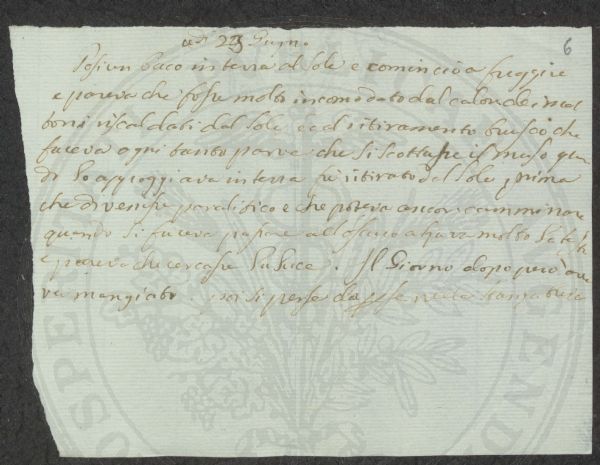 adì 23 Giug.o
6
Posi un baco in terra al sole e cominciò a fuggire
e pareva che fosse molto incomodato dal calor dei mat
toni riscaldati dal sole ed al ritiramento brusco che
faceva ogni tanto parve che si scottasse il muso quan
di lo appoggiava in terra fu ritirato dal sole prima
che divenisse paralitico e che poteva ancor camminare
quando si faceva passare all oscuro alzava molto la testa
e pareva che cercasse la luce. Il Giorno dopo però ave
va mangiato. poi si perse da se nella stanza